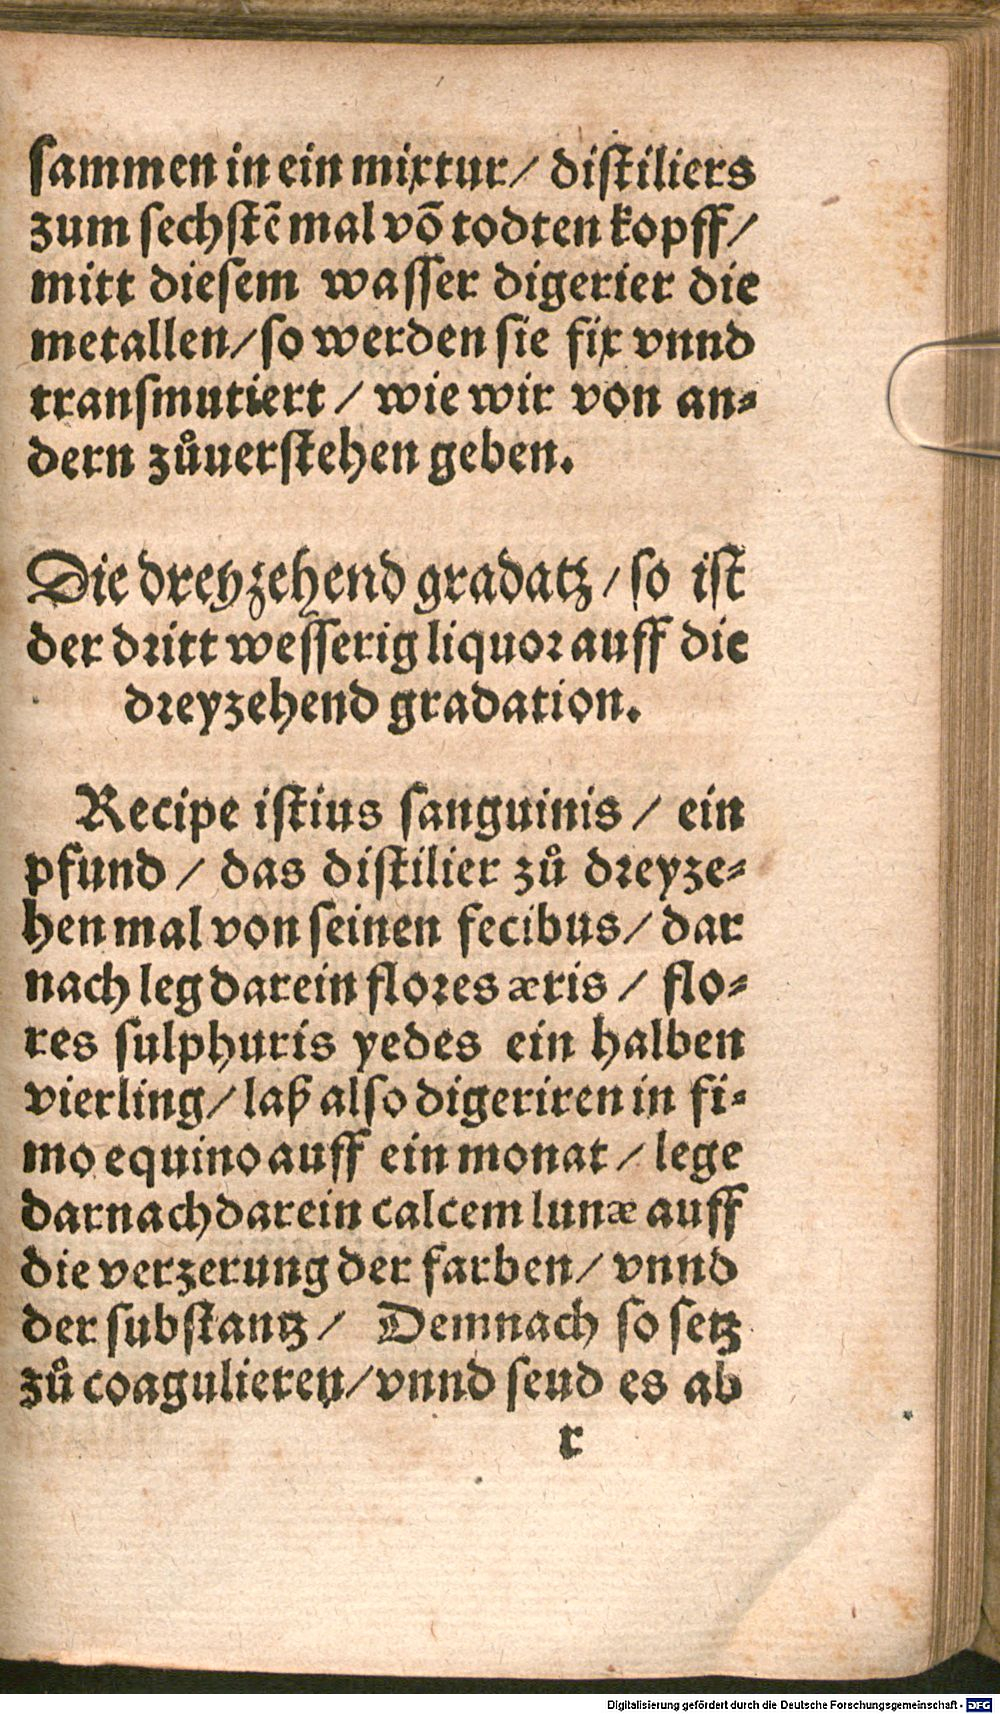 sammen in ein mixtur/ distiliers
zum sechstē mal vō todten kopff/
mitt diesem wasser digerier die
metallen/ so werden sie fix vnnd
transmutiert / wie wir von an-
dern zůuerstehen geben.
Die dreyzehend gradatz / so ist
der dritt wesserig liquor auff die
dreyzehend gradation.
Recipe istius sanguinis / ein
pfund / das distilier zů dreyze-
hen mal von seinen fecibus/ dar
nach leg darein flores æris / flo-
res sulphuris yedes ein halben
vierling/ laß also digeriren in fi-
mo equino auff ein monat / lege
darnach darein calcem lunæ auff
die verzerung der farben/ vnnd
der substantz / Demnach so setz
zů coagulieren/ vnnd seud es ab
r
Digitalisierung gefördert durch die Deutsche Forschungsgemeinschaft - DFG